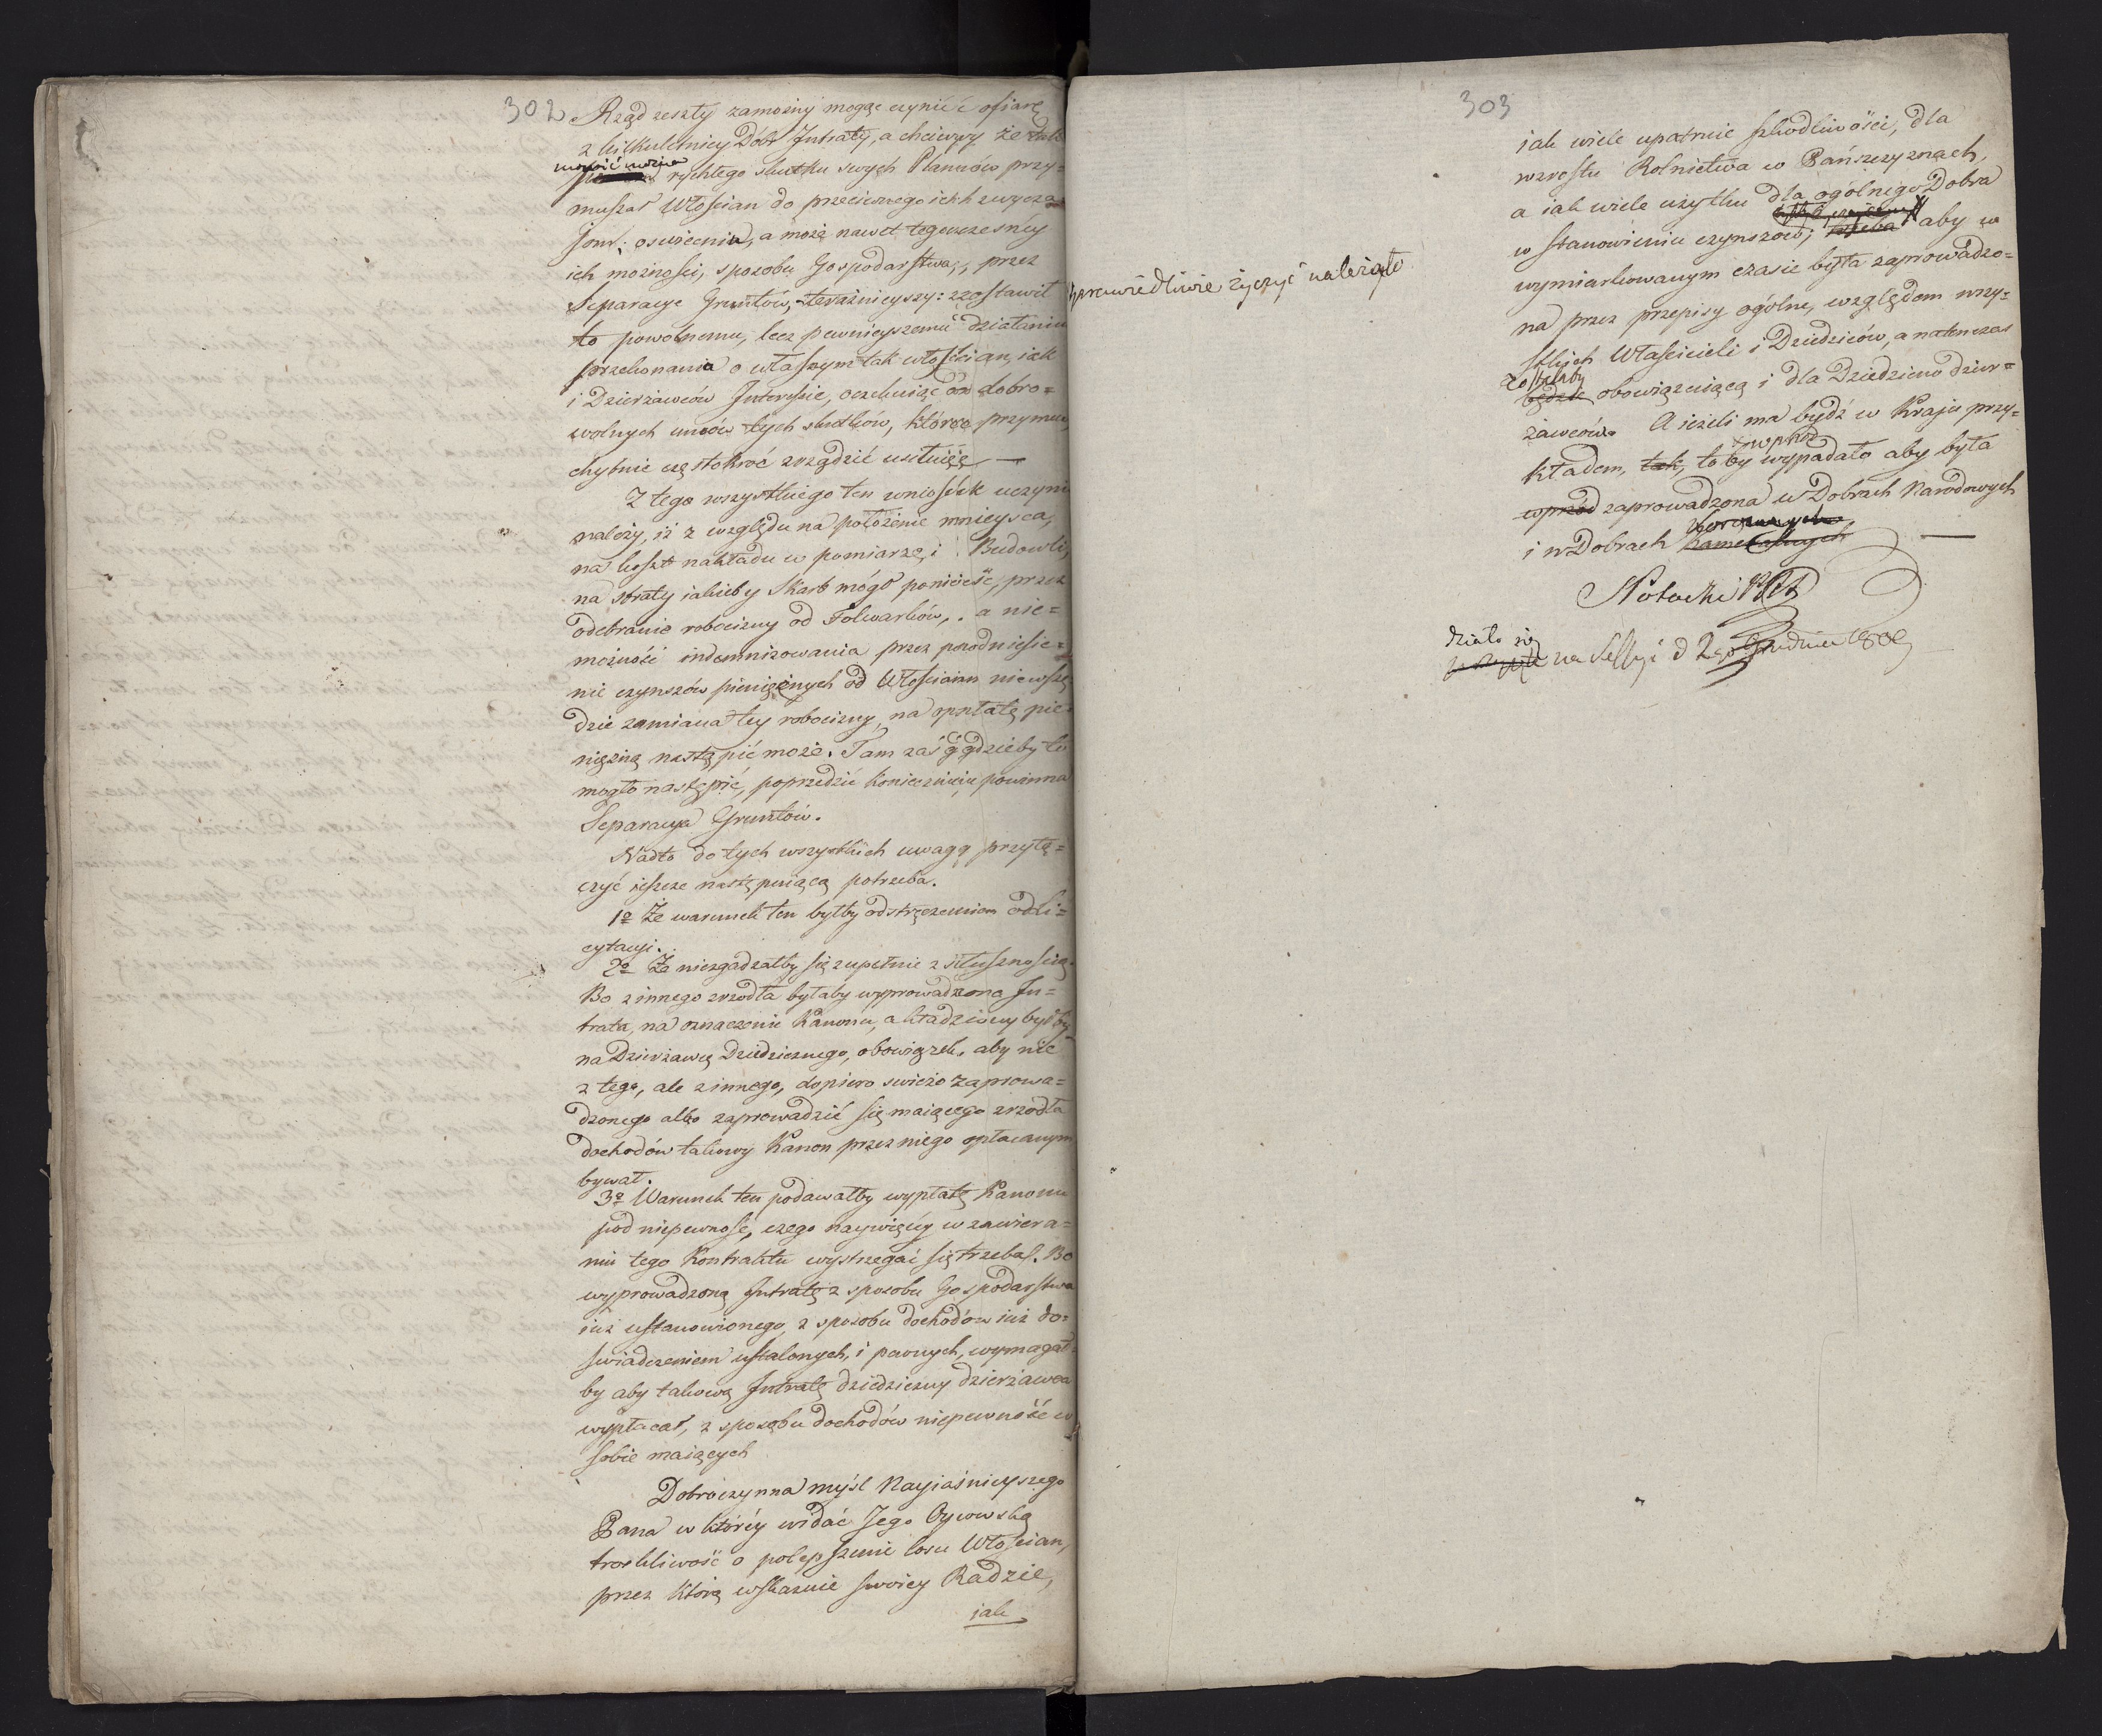 302
Rząd zeszły zamożny mogąc czynić ofiarę
z kilkuletniey Dóbr Intraty, a chciwy że tak
mówić można
rychłego skutku swych Plannów przy=
muszał Włościan do przeciwnego ich zwycza
iom; oswieceniu, a może nawet tegoczesnéy
ich możności, sposobu Gospodarstwa, przez
Separacye Gruntów, terażnieyszy: zostawił
to powolnemu, lecz pewnieyszemu działaniu
przekonania o własnym tak włościan, iak
i Dzierżawców Interesie, oczekuiąc od dobro=
wolnych umów tych skutków, które przymus
chybnie częstokroć zrządzić usiłuie —
Z tego wszystkiego ten wniosek uczynić
należy, iż z względu na położenie mnieysca,
na koszt nakładu w pomiarze, i Budowli,
na straty iakieby Skarb mógł ponieść, przez
odebranie robocizny od Folwarków, a nie=
możność indemnizowania przez podniesie=
nie czynszów pieniężnych od Włościan niewszę
dzie zamiana tey robocizny, na opłatę pie=
niężną nastąpić może. Tam zaś gdzieby to
mogło nastąpić, poprzedzić koniecznie powinna
Separacya Gruntów.
Nadto do tych wszystkich uwagę przyłą=
czyć ieszcze następuiącą potrzeba.
1º Że warunek ten byłby odstręczeniem od li=
cytacyi.
2º Że niezgadzałby się zupełnie z słusznością.
Bo z innego zrzodła byłaby wyprowadzona In=
trata, na oznaczenie Kanonu, a kładziony byłby
na Dzierżawcę Dziedzicznego, obowiązek, aby nie
z tego, ale z innego, dopiero swieżo zaprowa=
dzonego albo zaprowadzić się maiącego zrzodła
dochodów takowy Kanon przez niego opłacanym
bywał.
3º Warunek ten podawałby wypłatę Kanonu
pod niepewność, czego naywięcéy w zawiera=
niu tego Kontraktu wystrzegać się trzeba. Bo
wyprowadzoną Intratę z sposobu Gospodarstwa
iuż ustanowionego, z sposobu dochodów iuż do=
świadczeniem ustalonych, i pewnych, wymagał=
by aby takową Intratę dziedziczny dzierżawca
wypłacał, z sposobu dochodów niepewność w
sobie maiących
Dobroczynna myśl Nayiaśnieyszego
Pana w któréy widać Jego Oycowską
troskliwość o polepszenie losu Włościan,
przez którą wskazuie swoiey Radzie,
iak
303
iak wiele upatruie szkodliwości, dla
wzrostu Rolnictwa w Pańszczyznach,
a iak wiele użytku dla ogólnego Dobra
w stanowieniu czynszów; trzeba aby w
sprawiedliwie życzyć należało
wymiarkowanym czasie była zaprowadzo=
na przez przepisy ogólne, względem wszy=
stkich Właścicieli i Dziedziców, a natenczas
zostałaby
będzie obowiązuiącą i dla Dziedziczno dzier=
żawców. A ieżeli ma bydź w Kraju przy=
wprzód
kładem, tak, to by wypadało aby była
wprzód zaprowadzona w Dobrach Narodowych
i w Dobrach
działo się
na Sessyi d 2go Grudnia 1809